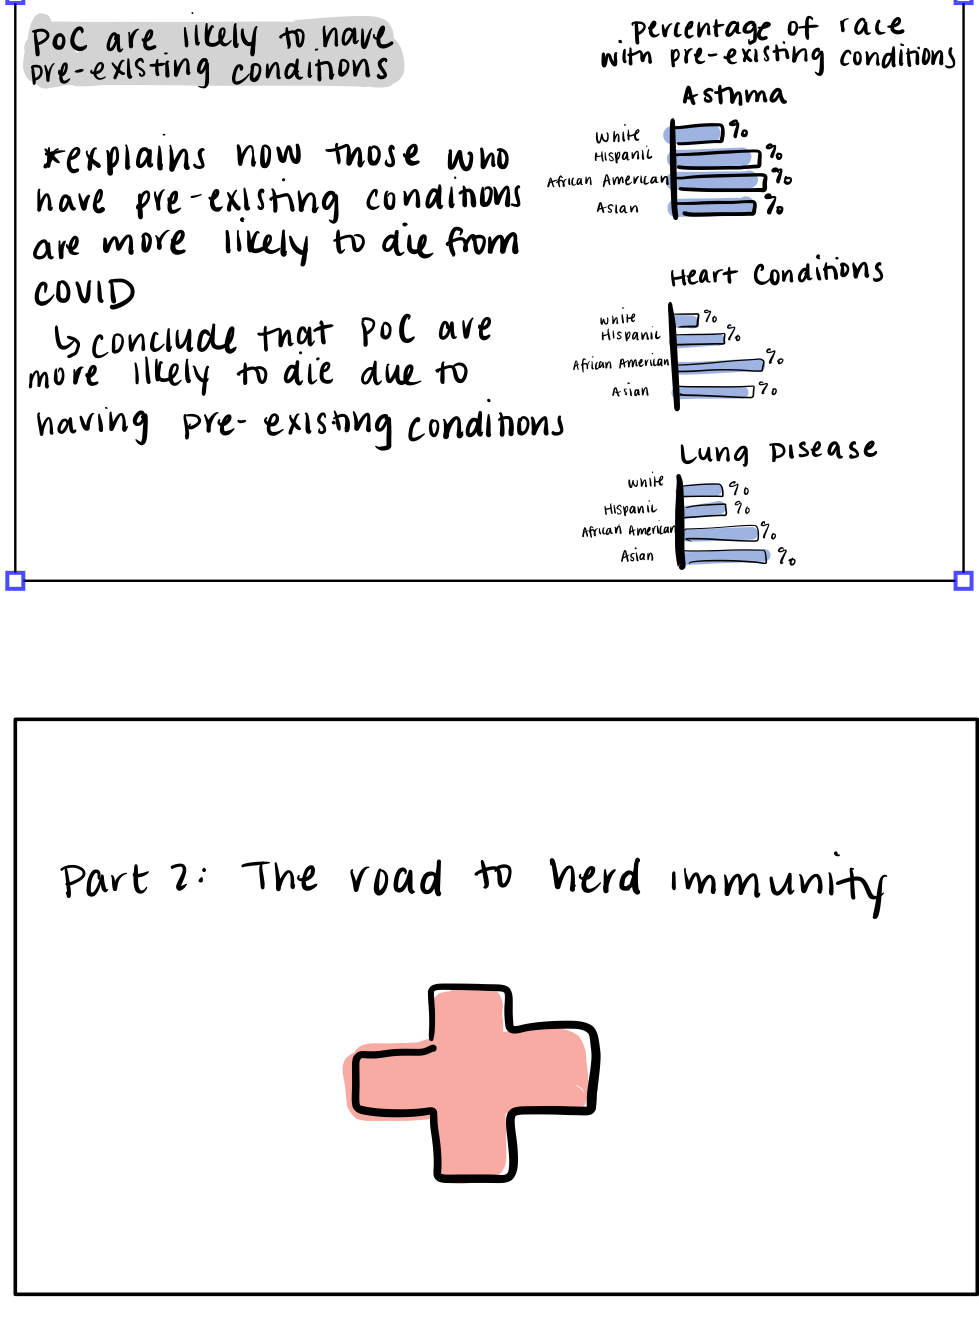 PoC are likely to have
pre-existing conditions
*explains how those who
have pre-existing conditions
are more likely to die from
COVID
↳ conclude that PoC are
more likely to die due to
having pre-existing conditions
percentage of race
with pre-existing conditions
Asthma
White %
Hispanic %
African American %
Asian %
Heart Conditions
White %
Hispanic %
African American %
Asian %
Lung Disease
White %
Hispanic %
African American %
Asian %
Part 2: The road to herd immunity